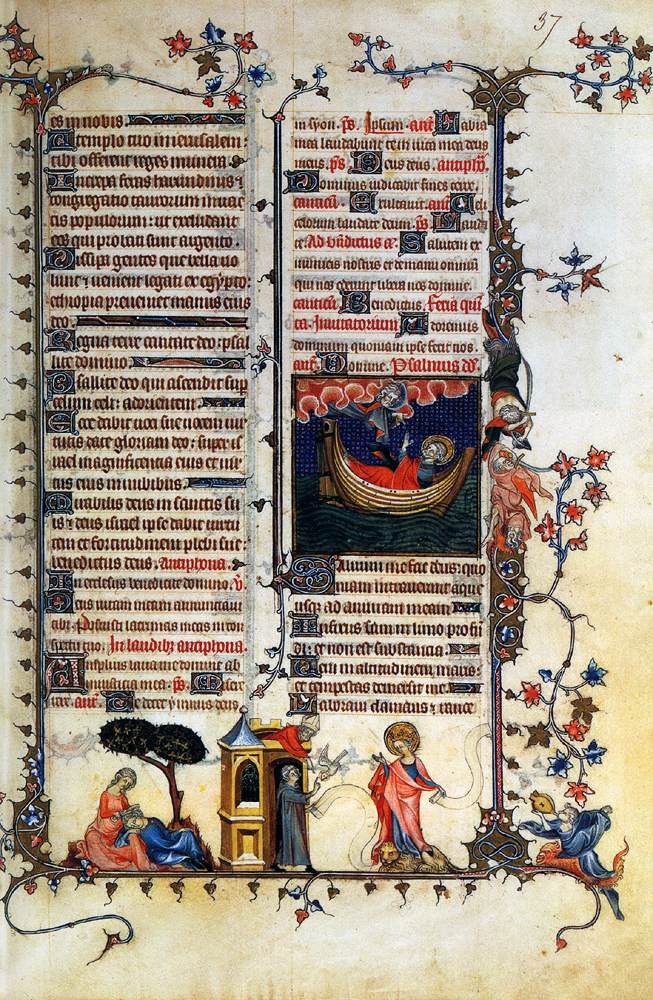 37
es in nobis
A templo tuo in ierusalem:
tibi offerent reges munera
Increpa feras harundinis ⁊
congregatio taurorum in vac
cis populorum: ut excludant
eos qui probati sunt argento.
Dissipa gentes que bella vo
lunt ⁊ venient legati ex egypto:
ethiopia preveniet manus eius
deo.
Regna terre cantate deo: psal
lite domino
Psallite deo qui ascendit sup
celum celi: ad orientem
Ecce dabit voci sue vocem vir
tutis date gloriam deo: super is
rael magnificentia eius et vir
tus eius in nubibus
Mirabilis deus in sanctis su
is deus israel ipse dabit virtu
tem et fortitudinem plebi sue:
benedictus deus. Antiphona.
In ecclesiis benedicite domino. V.
Deus vitam meam annunciavi
tibi. Posuisti lacrimas meas in con
spectu tuo. In laudibꝫ antiphona.
Amplius lava me domine ab
iniusticia mea. ps. Misere
ant. Te decet ymnus deus
in syon. ps. Ipsum. ant. Labia
mea laudabunt te in vita mea deus
meus. ps. Deus deus. antiph.
Dominus iudicabit fines terre.
canticū. Exultavit. ant. Celi
celorum laudate deum. ps. Laud
te. Ad bñdictus Salutem ex
inimicis nostris et de manu omnium
qui nos oderunt libera nos domine.
canticū. Benedictus. Feria qui
ta. Invitatorium. Adoremus
dominum quoniam ipse fecit nos.
ant. Domine. Psalmus dd.
Salvum me fac deus: quo
niam intraverunt aque
usqz ad animam meam
Infixus sum in limo profū
di: et non est substancia.
Veni in altitudinem maris:
et tempestas demersit me.
Laboravi clamans ⁊ rauce